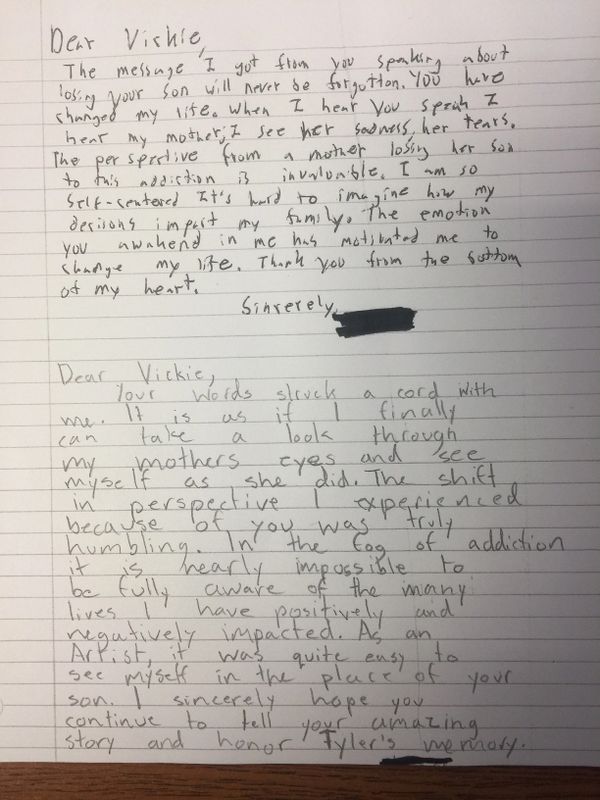 Dear Vickie,
The message I got from you speaking about
losing your son will never be forgotton. You have
changed my life. When I hear you speak I
hear my mother, I see her sadness, her tears.
The perspective from a mother lossing her son
to this addiction is invaluable. I am so
self-centered It's hard to imagine how my
decisions impact my family. The emotion
you awakend in me has motivated me to
change my life. Thank you from the bottom
of my heart.
Sincerely,
Dear Vickie,
Your words struck a cord with
me. It is as if I finally
can take a look through
my mothers eyes and see
myself as she did. The shift
in perspective I experienced
because of you was truly
humbling. In the fog of addiction
it is nearly impossible to
be fully aware of the many
lives I have positively and
negatively impacted. As an
Artist, it was quite easy to
see myself in the place of your
son. I sincerely hope you
continue to tell your amazing
story and honor Tyler's memory.